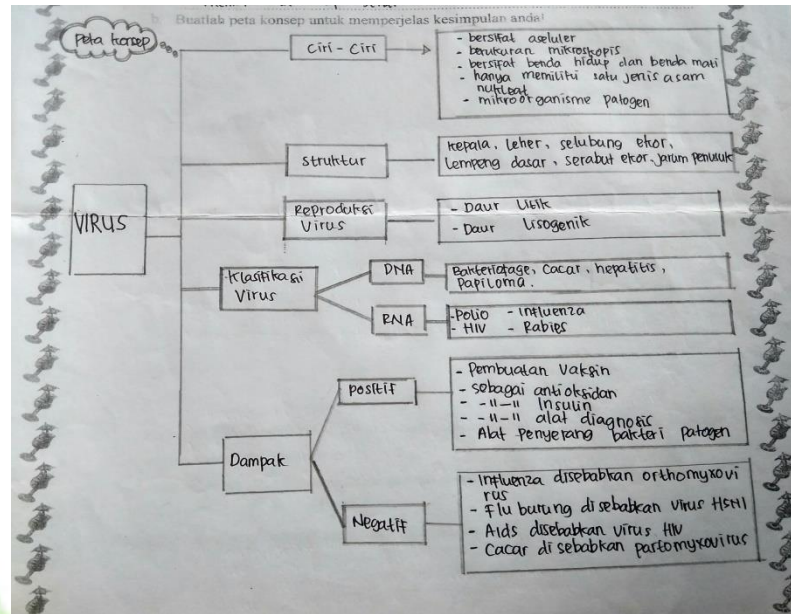 b. Buatlah peta konsep untuk memperjelas kesimpulan anda!
Peta konsep
VIRUS
Ciri - Ciri
- bersifat aseluler
- berukuran mikroskopis
- bersifat benda hidup dan benda mati
- hanya memiliki satu jenis asam
nukleat
- mikroorganisme patogen
Struktur
kepala, leher, selubung ekor,
Lempeng dasar, serabut ekor, jarum penusuk
Reproduksi
Virus
- Daur Litik
- Daur Lisogenik
Klasifikasi
Virus
DNA
Bakteriofage, Cacar, hepatitis,
Papiloma.
RNA
- Polio - Influenza
- HIV - Rabies
Dampak
positif
- Pembuatan Vaksin
- sebagai antioksidan
- -"-" Insulin
- -"-" alat diagnosis
- Alat Penyerang bakteri patogen
Negatif
- Influenza disebabkan orthomyxovi
rus
- Flu burung disebabkan virus H5N1
- Aids disebabkan virus HIV
- Cacar disebabkan partomyxovirus